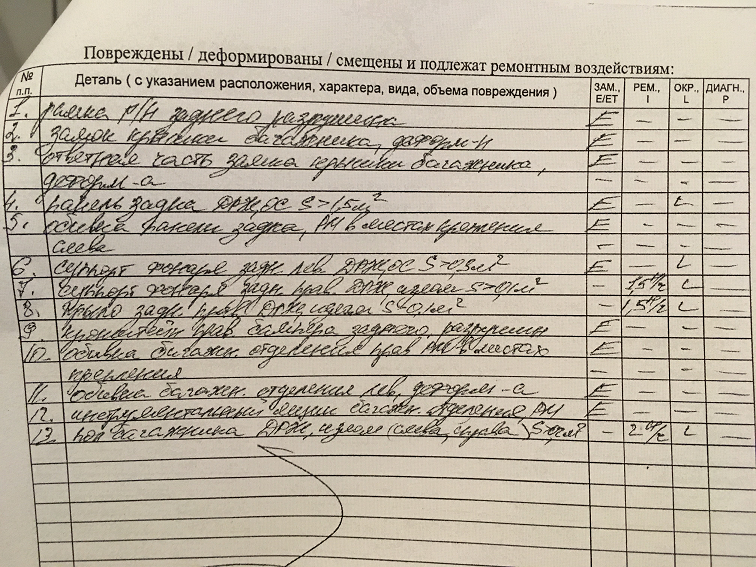 Повреждены / деформированы / смещены и подлежат ремонтным воздействиям:
№ п.п. Деталь ( с указанием расположения, характера, вида, объема повреждения ) ЗАМ., E/ET РЕМ., I ОКР., L ДИАГН., P
1. рамка Р/Н заднего разрушена E – – –
2. замок крышки багажника, деформ-н E – – –
3. ответная часть замка крышки багажника, E – – –
деформ-а – – – –
4. панель задка ДРЖ, ОС S>1,5м² E – L –
5. обивка панели задка, РН в местах крепления E – – –
слева – – – –
6. суппорт фонаря задн. лев. ДРЖ, ОС S>0,3м² E – L
7. суппорт фонаря задн. прав ДРЖ излом S>0,1м² – 1,5 н/ч L –
8. крыло задн. прав ДРЖ, излом S>0,1м² – 1,5 н/ч L –
9. кронштейн прав бампера заднего разрушен E – – –
10. обивка багажн. отделения прав РН в местах E – – –
крепления – – – –
11. обивка багажн. отделения лев, деформ-а E – – –
12. инструментальный ящик багажн. отделения РН E – – –
13. пол багажника ДРЖ, излом (слева, справа) – 2 н/ч L –